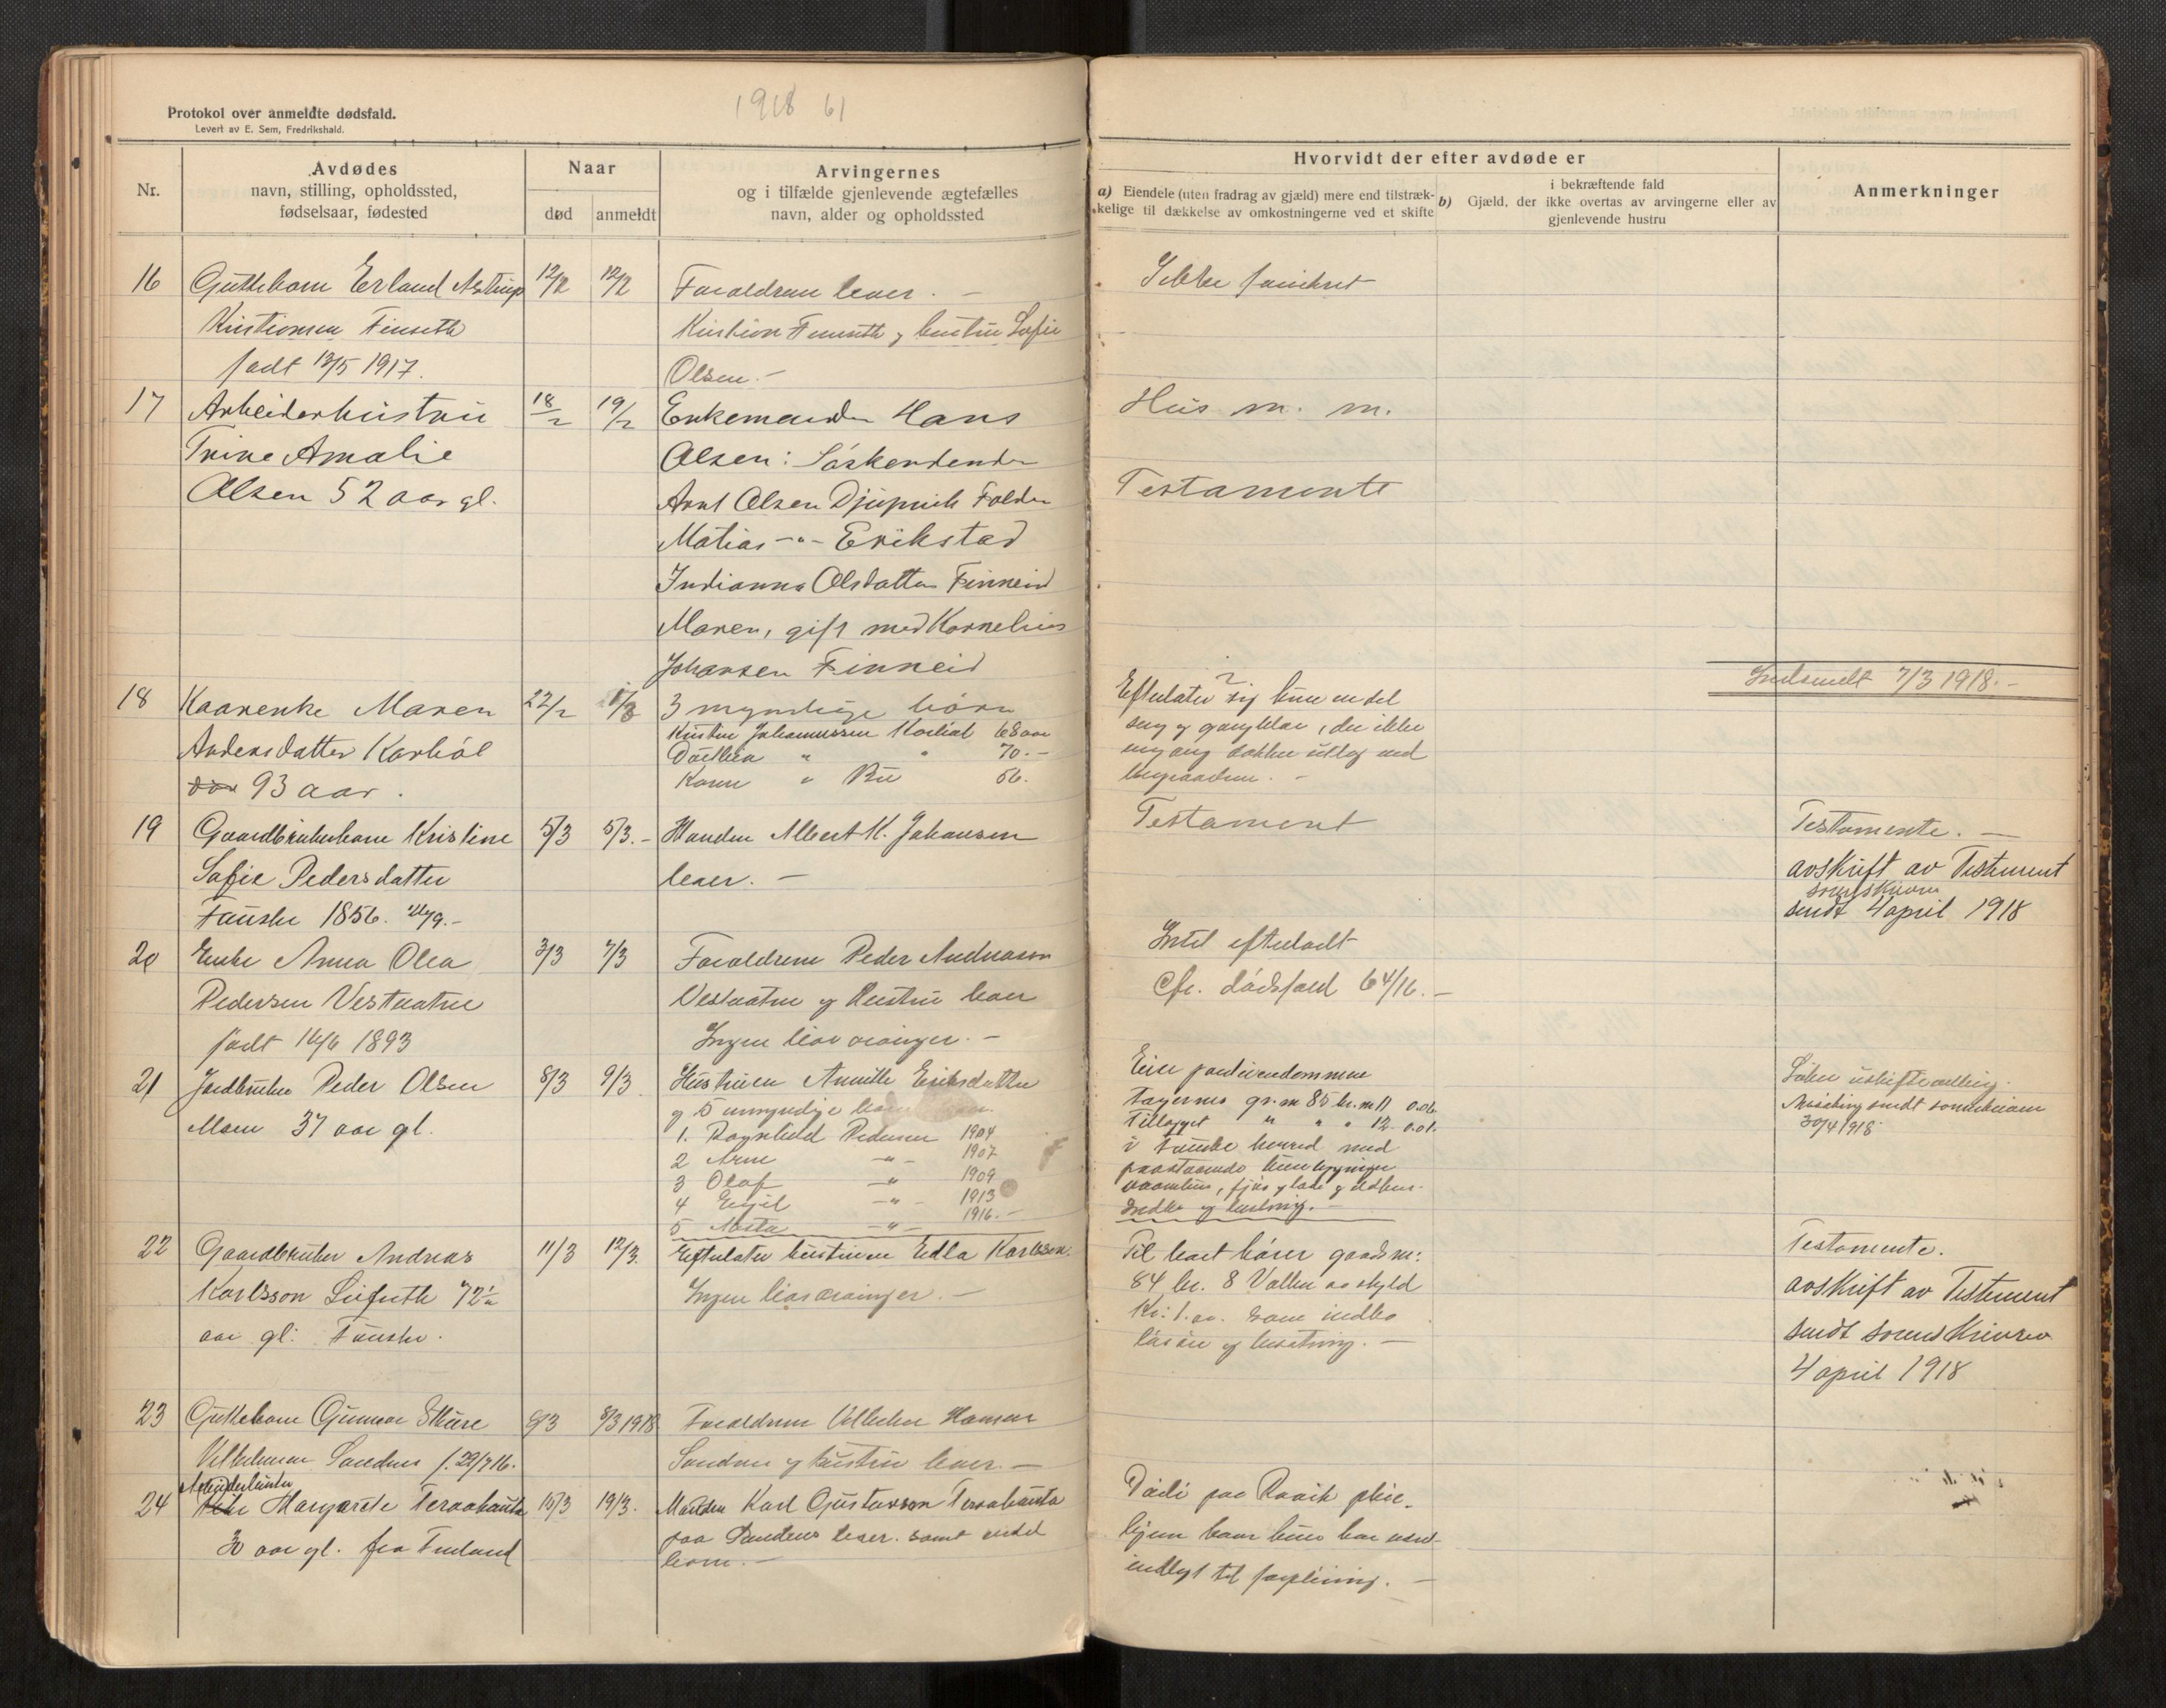 Protokol over anmeldte dødsfald.
Levert av E. Sem, Fredrikshald.
1918 61
Nr.
Avdødes
navn, stilling, opholdssted,
fødselsaar, fødested
Naar
død
anmeldt
Arvingernes
og i tilfælde gjenlevende ægtefælles
navn, alder og opholdssted
Hvorvidt der efter avdøde er
a) Eiendele (uten fradrag av gjæld) mere end tilstræk-
kelige til dækkelse av omkostningerne ved et skifte
i bekræftende fald
b) Gjæld, der ikke overtas av arvingerne eller av
gjenlevende hustru
Anmerkninger
16 Guttebarn Erland Astrup 12/2 12/2 Forældrene lever. -
Kristiansen Finseth
født 13/5 1917.
Kristian Finseth og hustru Sofie
Olsen. -
Ikke
17 Arbeiderhustru 18/2 19/2 Enkemanden Hans
Trine Amalie
Olsen 52 aar gl.
Olsen: Søskendende
Arnt Olsen Djupvik Folden
Matias -"- Erikstad
Indianna Olsdatter Finneid
Maren, gift med Kornelius
Johansen Finneid
Hus m. m.
Testamente
Indsendt 7/3 1918. -
18 Kaarenke Maren 22/2 1/3 3 myndige børn
Andersdatter Karbøl
93 aar.
Kristen Johannessen 68 aar
Dorthea " " 70. -
Karen " 56.
Efterlater sig kun en del
seng og gangklær, der ikke
engang dækker utlæg ved
begravelsen. -
19 Gaardbrukerkone Kristine 5/3 5/3. - Manden Albert K. Johansen
Sofie Pedersdatter
Fauske 1856.
lever. -
Testament
Testamente. -
avskrift av Testament
sorenskriveren
sendt 4 april 1918
20 Enke Anna Olea 3/3 7/3 Forældrene Peder Andreason
Pedersen Vestvatne
født 16/6 1893
Vestvatne og hustru lever
Ingen livsarvinger. -
Intet efterladt
Cfr. dødsfald 64/16. -
21 Jordbruker Peder Olsen 8/3 9/3 Hustruen Annette Eriksdatter
Moen 37 aar gl.
og 5 umyndige børn
1. Ragnhild Pedersen 1904
2 Arne -"- 1907
3 Olaf -"- 1909
4 Eigil -"- 1913
5 Aasta -"- 1916. -
Eier
gr. m 85 br. m 11 0.06
Tillægget " " " 12 0.01.
i Fauske herred med
paastaaende
vaaningshus, fjøs og lade og ildhus.
Indbo og løsøre. -
sendt sorenskriveren
30/4 1918
22 Gaardbruker Andreas 11/3 12/3. Efterlater hustruen Edla Karlsson.
Karlsson 72½
aar gl. Fauske.
Ingen livsarvinger. -
Til boet hører gaards nr:
84 br. 8 Vallen av skyld
Kr: 1. samt indbo
løsøre og besætning. -
Testamente.
avskrift av Testament
sendt Sorenskriveren
4 april 1918
23 Guttebarn Gunnar Sture 8/3 8/3 1918 Forældrene Hansen
Sandnes f. 29/7 16.
Sandnes og hustru lever. -
24 Arbeiderhustru
Margarete Teraahauta 15/3 19/3. Manden Karl Gustavson Teraahauta
30 aar gl. fra Finland
paa Sandnes lever. samt endel
børn. -
Døde paa Røsvik pleie-
hjem hvor hun har været
indlagt til forpleining. -